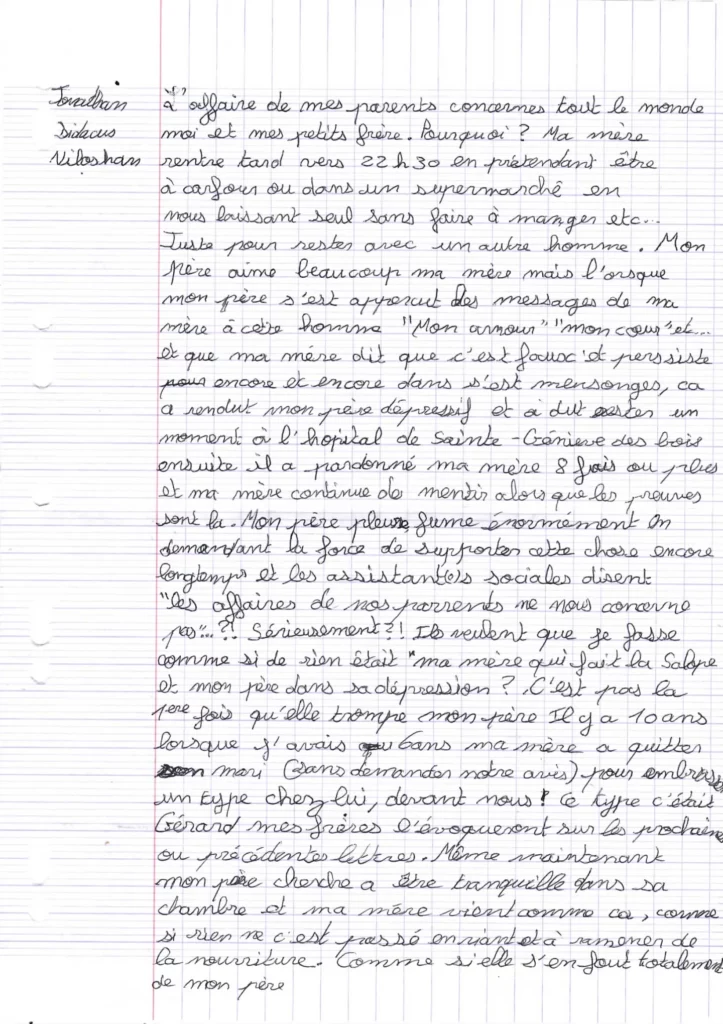 Jonathan
Didacus
Niloshan
L'affaire de mes parents concernes tout le monde
moi et mes petits frère. Pourquoi ? Ma mère
rentre tard vers 22h30 en prétendant être
à carfour ou dans un supermarché en
nous laissant seul sans faire à manger etc...
Juste pour rester avec un autre homme. Mon
père aime beaucoup ma mère mais l'orsque
mon père s'est apperçut des messages de ma
mère à cette homme "Mon amour" "mon cœur" et...
et que ma mère dit que c'est faux et perssiste
encore et encore dans s'est mensonges, ca
a rendut mon père dépressif et a dût rester un
moment à l'hopital de Sainte-Génieve des bois
ensuite il a pardonné ma mère 8 fois ou plus
et ma mère continue de mentir alors que les preuves
sont la. Mon père pleure, fume énormément en
demandant la force de supporter cette chose encore
longtemps et les assistant(e)s sociales disent
"les affaires de nos parrents ne nous concerne
pas"...?! Sérieusement?! Ils veulent que je fasse
comme si de rien était "ma mère qui fait la Salope
et mon père dans sa dépression ? C'est pas la
1ere fois qu'elle trompe mon père Il y a 10 ans
lorsque j'avais 6ans ma mère a quitter
son mari (sans demander notre avis) pour embrasser
un type chez lui, devant nous ! Ce type c'était
Gérard mes frères l'évoqueront sur les prochaines
ou précédentes lettres. Même maintenant
mon père cherche a être tranquille dans sa
chambre et ma mère vient comme ca, comme
si rien ne c'est passé en riant et à ramener de
la nourriture. Comme si elle s'en fout totalement
de mon père